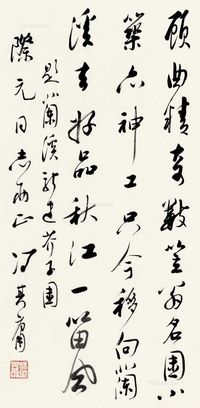 顾曲精奇数笠翁名园小
筑亦神工只今移向兰
溪去好品秋江一笛风
题兰溪新建芥子园
际元同志两正 冯其庸